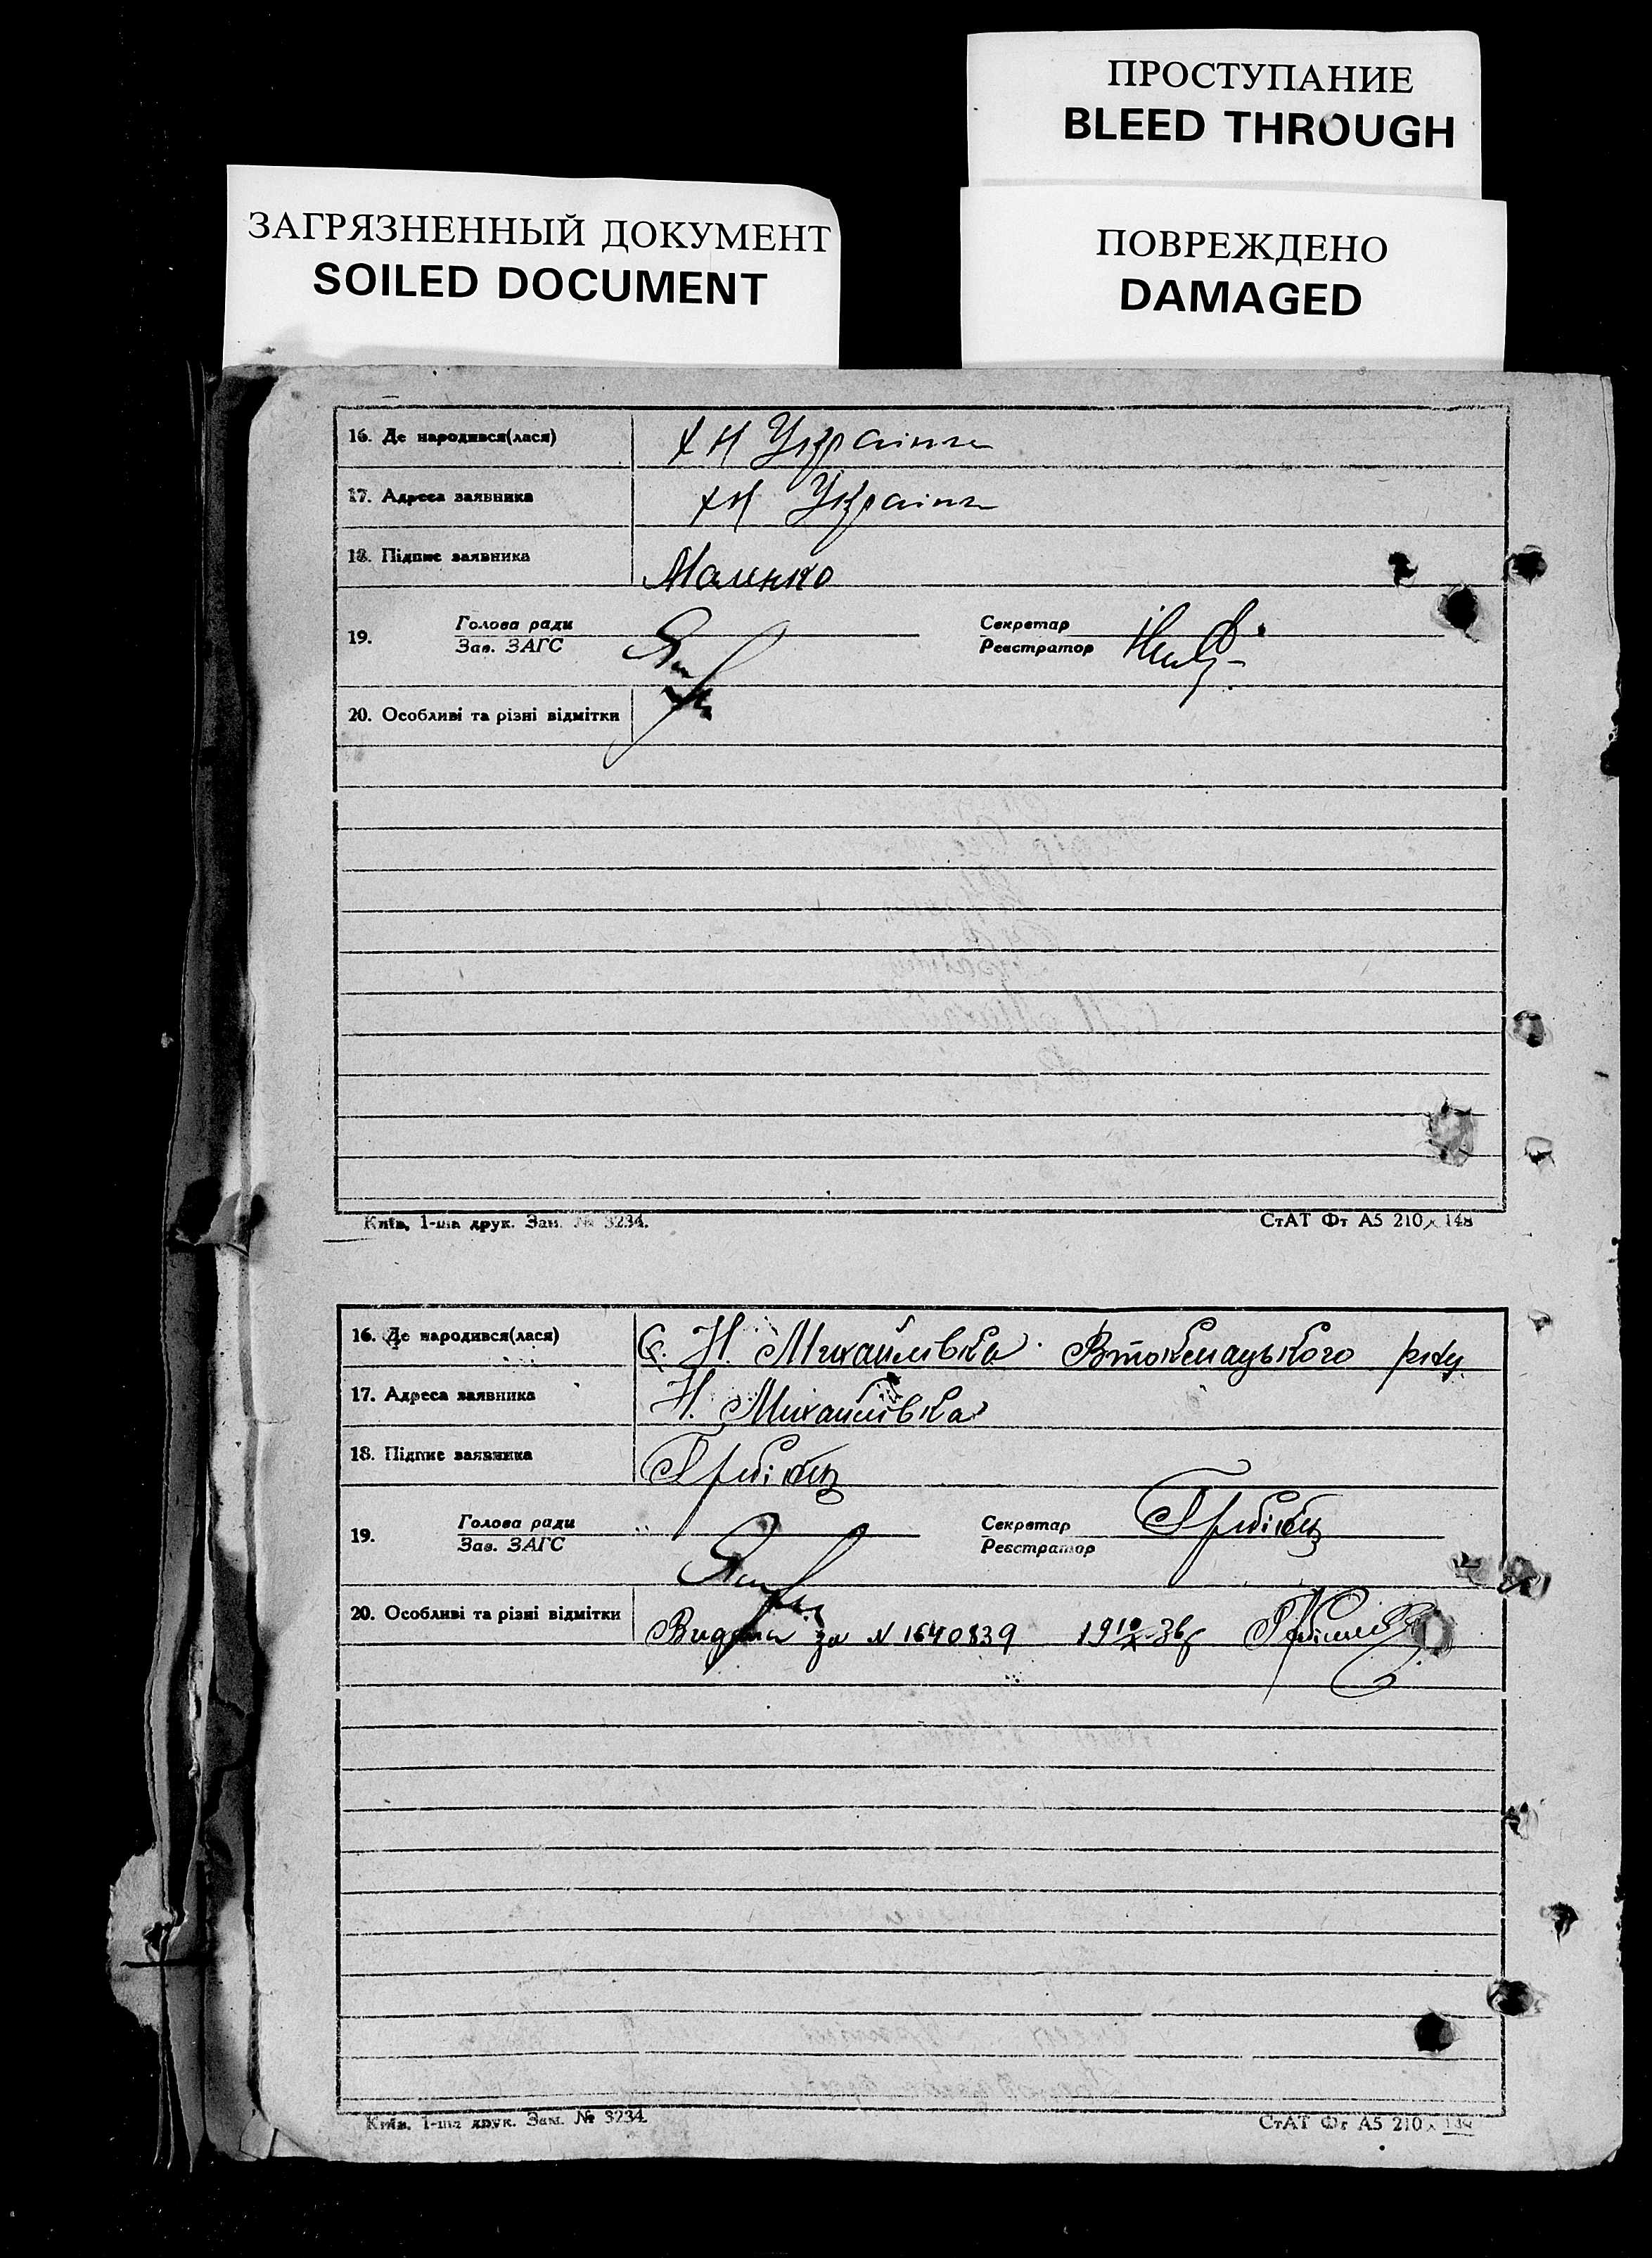 ПРОСТУПАНИЕ
BLEED THROUGH
ЗАГРЯЗНЕННЫЙ ДОКУМЕНТ
SOILED DOCUMENT
ПОВРЕЖДЕНО
DAMAGED
16. Де народився(лася) х Н Україна
17. Адреса заявника х Н Україна
18. Підпис заявника Маленко
19. Голова ради Секретар
Зав. ЗАГС Реєстратор
20. Особливі та різні відмітки
Київ, 1-ша друк. Зам. № 3234. СтАТ Фт А5 210 х 148
16. Де народився(лася) С. Н. Михайлівка Втокмацького р-ну
17. Адреса заявника Н. Михайлівка
18. Підпис заявника
19. Голова ради Секретар
Зав. ЗАГС Реєстратор
20. Особливі та різні відмітки за N 1640839
Київ, 1-ша друк. Зам. № 3234. СтАТ Фт А5 210 х 148